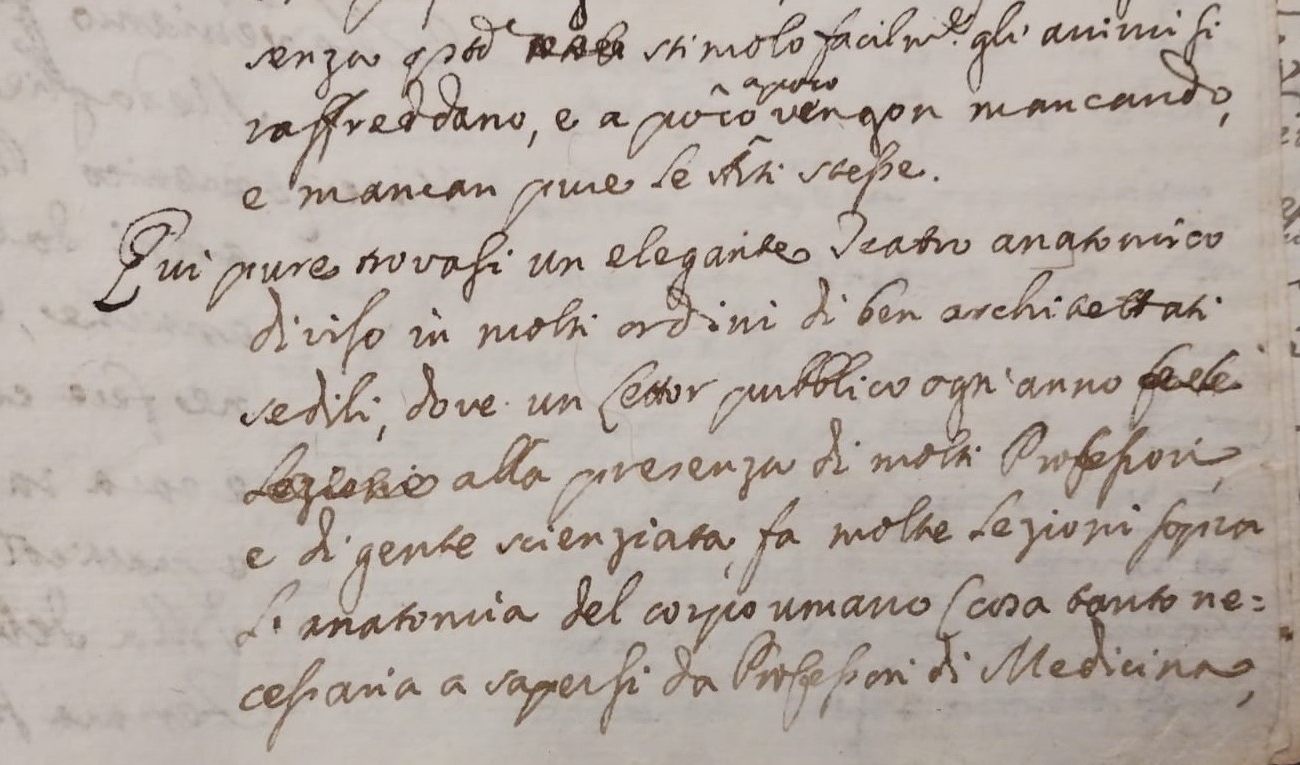 senza qsto stimolo facilmte. gli animi si
raffreddano, e a poco a poco vengon mancando,
e mancan pure le Arti stesse.
Qui pure trovasi un elegante Teatro anatomico
diviso in molti ordini di ben architettati
sedili, dove un Lettor pubblico ogn'anno
lezione alla presenza di molti Professori,
e di gente scienziata, fa molte lezioni sopra
l'anatomia del corpo umano (cosa tanto ne=
cessaria a sapersi da Professori di Medicina,